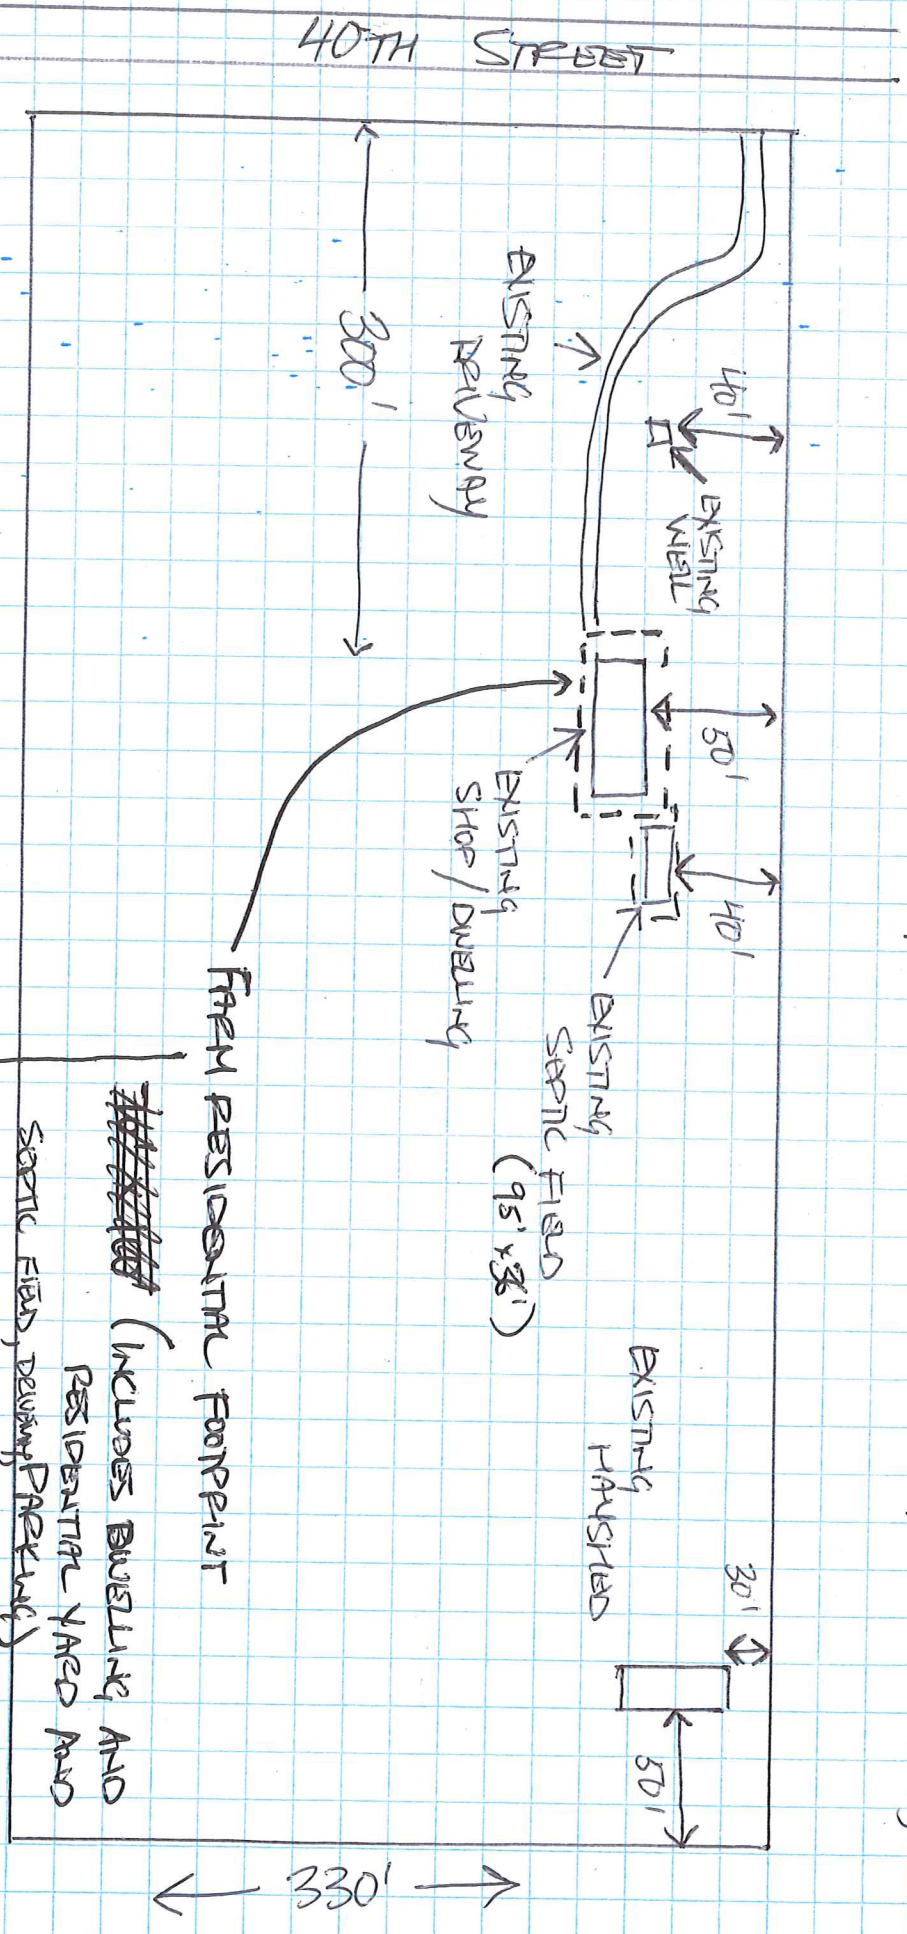 40TH STREET
300'
EXISTING
DRIVEWAY
40'
EXISTING
WELL
50'
EXISTING
SHOP/DWELLING
40'
EXISTING
SEPTIC FIELD
(95' x 36')
FARM RESIDENTIAL FOOTPRINT
(INCLUDES DWELLING AND
RESIDENTIAL YARD AND
SEPTIC FIELD, DRIVEWAY, PARKING)
EXISTING
HAYSHED
30'
50'
330'